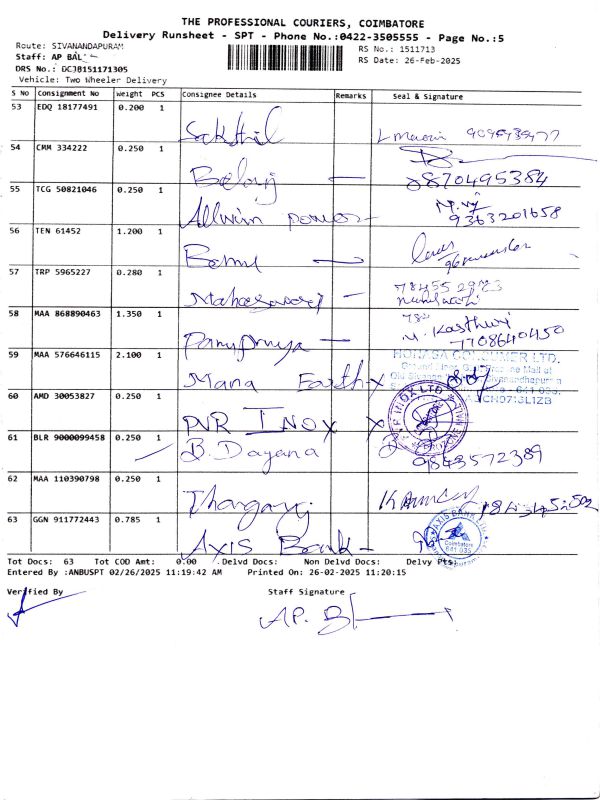 THE PROFESSIONAL COURIERS, COIMBATORE
Delivery Runsheet - SPT - Phone No.:0422-3505555 - Page No.:5
Route: SIVANANDAPURAM
RS No.: 1511713
Staff: AP BAL
RS Date: 26-Feb-2025
DRS No.: DCJB151171305
Vehicle: Two Wheeler Delivery
S No Consignment No Weight PCS Consignee Details Remarks Seal & Signature
53 EDQ 18177491 0.200 1
Sakthil
54 CMM 334222 0.250 1
Balaji 8870495384
55 TCG 50821046 0.250 1
Allwin power 9363201658
56 TEN 61452 1.200 1
57 TRP 5965227 0.280 1
Maheswari
58 MAA 868890463 1.350 1
M. Kasthuri
7708640450
59 MAA 576646115 2.100 1
HONASA CONSUMER LTD.
Mama Earth
60 AMD 30053827 0.250 1
PVR INOX LTD
PVR INOX
61 BLR 9000099458 0.250 1
B. Dayana 9843572389
62 MAA 110390798 0.250 1
Thangaraj
63 GGN 911772443 0.785 1
AXIS BANK
Coimbatore
641 035
Axis Bank
Tot Docs: 63 Tot COD Amt: 0.00 Delvd Docs: Non Delvd Docs: Delvy Pts:
Entered By :ANBUSPT 02/26/2025 11:19:42 AM Printed On: 26-02-2025 11:20:15
Verified By Staff Signature
AP. B